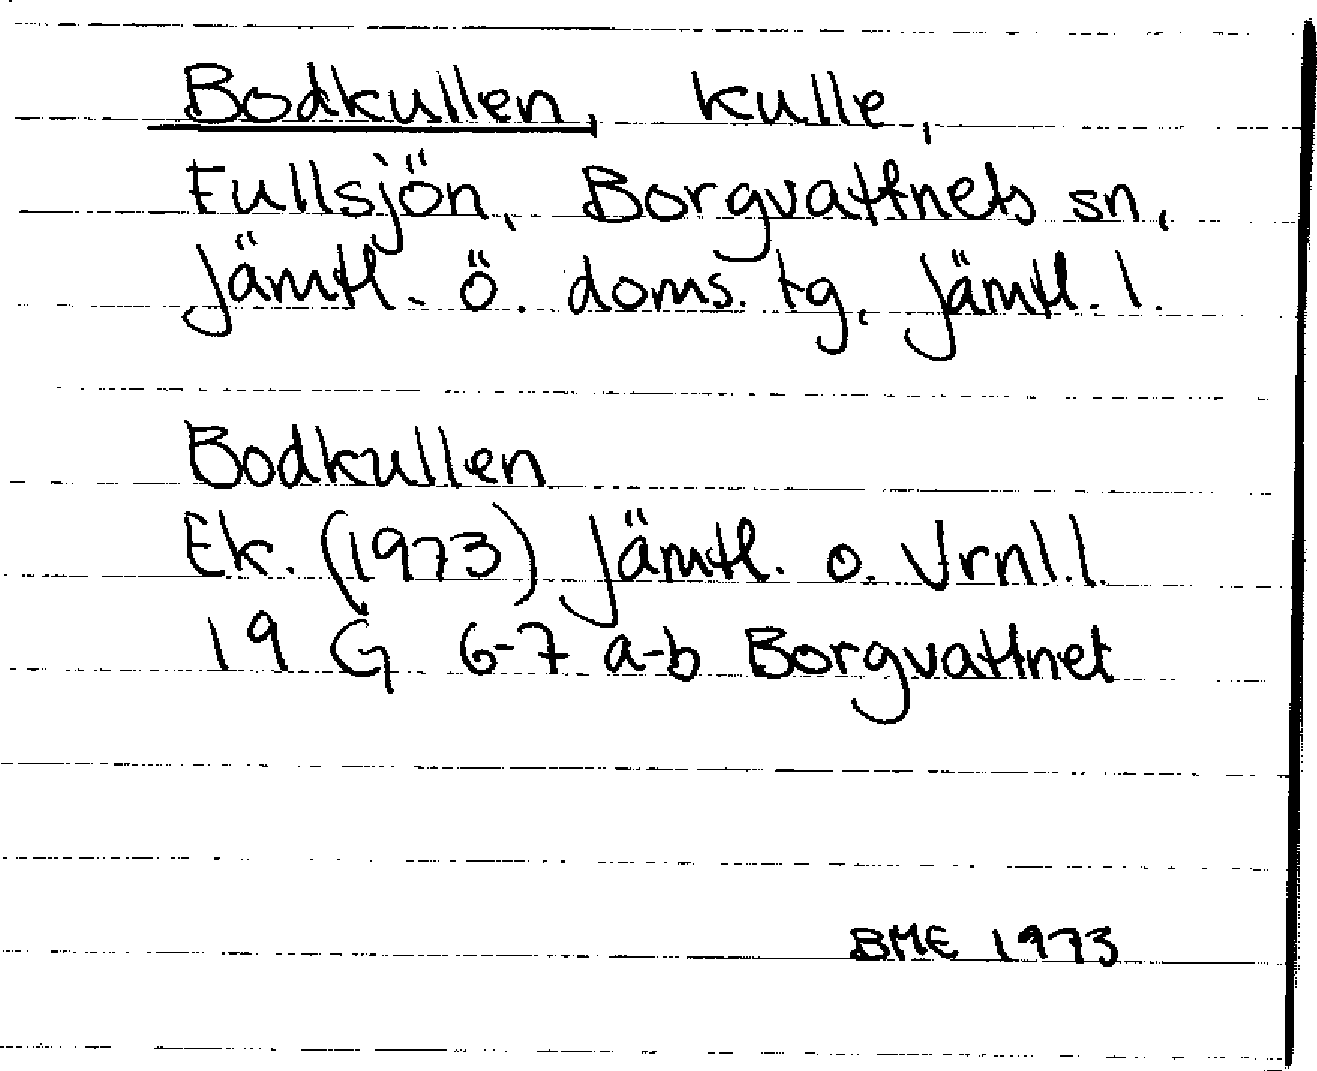 Bodkullen, kulle,
Fullsjön, Borgvattnets sn,
Jämtl. ö. doms. tg, Jämtl. l.
Bodkullen
Ek. (1973) Jämtl. o. Vrnl.l.
19 G 6-7 a-b Borgvattnet
BME 1973